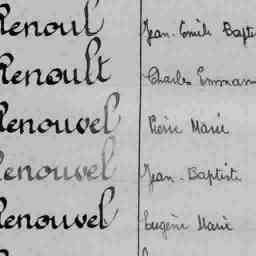 Renoul Jean-Emile Baptis
Renoult Charles Emman
Renouvel Pierre Marie
Renouvel Jean-Baptiste
Renouvel Eugène Marie